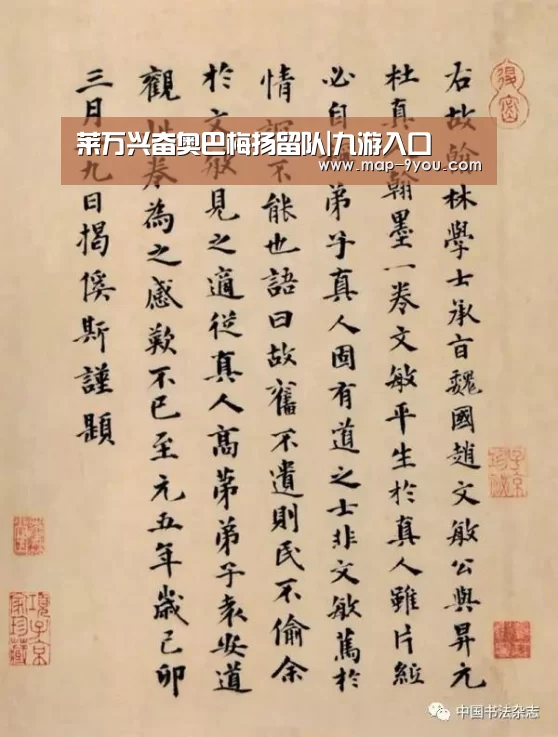 莱万兴奋奥巴梅扬留队|九游入口
www.map-9you.com
右故翰林學士承旨魏國趙文敏公與昇元
杜真翰墨一卷文敏平生於真人雖片紙
必自弟子真人固有道之士非文敏篤於
情不能也語曰故舊不遺則民不偷余
於文敏見之適從真人高第弟子袁安道
觀卷為之感歎不已至元五年歲己卯
三月九日揭傒斯謹題
項子京家珍藏
中国书法杂志